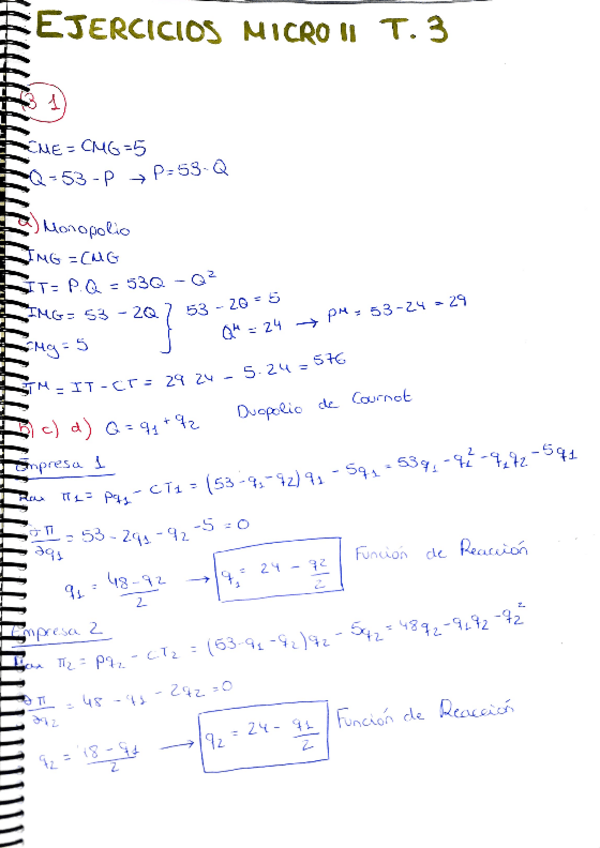 EJERCICIOS MICRO II T. 3
3 1
CME = CMG = 5
Q = 53 - P → P = 53 - Q
a) Monopolio
IMG = CMG
IT = P.Q = 53Q - Q²
IMG = 53 - 2Q } 53 - 2Q = 5
CMg = 5 Qᴹ = 24 → Pᴹ = 53 - 24 = 29
πᴹ = IT - CT = 29 24 - 5·24 = 576
b) c) d) Q = q1 + q2 Duopolio de Cournot
Empresa 1
Max π1 = Pq1 - CT1 = (53 - q1 - q2) q1 - 5q1 = 53q1 - q1² - q1q2 - 5q1
∂π/∂q1 = 53 - 2q1 - q2 - 5 = 0
q1 = (48 - q2)/2 → q1 = 24 - q2/2 Función de Reacción
Empresa 2
Max π2 = Pq2 - CT2 = (53 - q1 - q2) q2 - 5q2 = 48q2 - q1q2 - q2²
∂π/∂q2 = 48 - q1 - 2q2 = 0
q2 = (48 - q1)/2 → q2 = 24 - q1/2 Función de Reacción